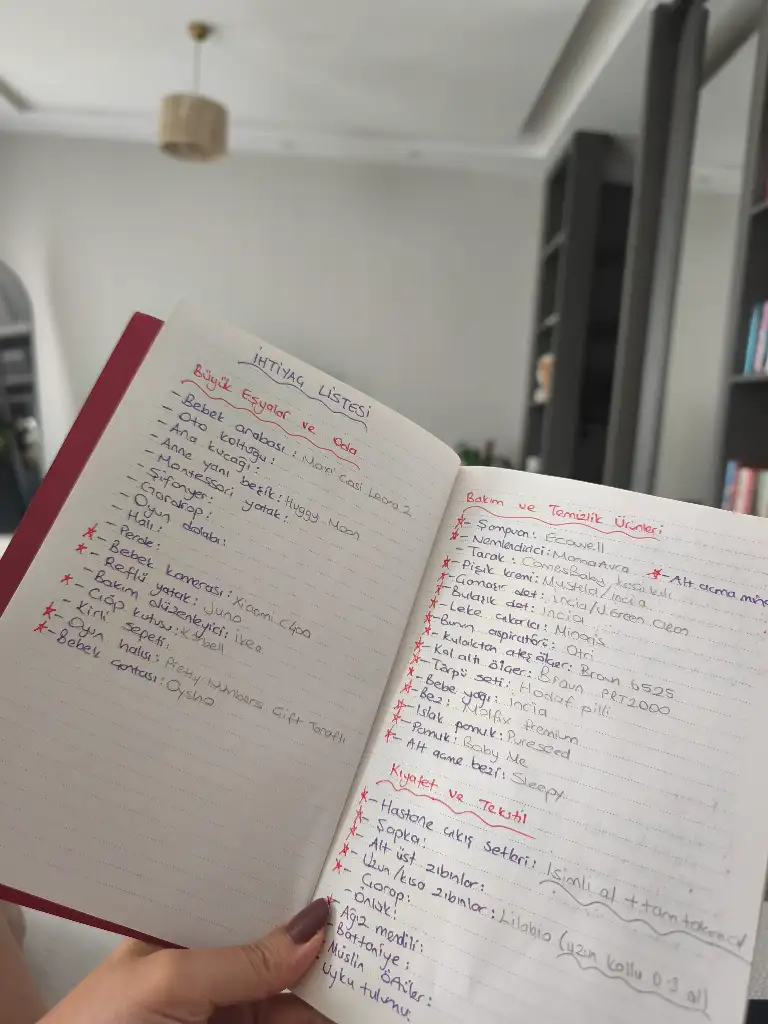 İHTİYAÇ LİSTESİ
Büyük Eşyalar ve Oda
- Bebek arabası : Maxi Cosi Leona 2
- Oto koltuğu :
- Ana kucağı :
- Anne yanı beşik : Huggy Moon
- Montessori yatak :
- Şifonyer :
- Gardrop :
- Oyun dolabı :
- Halı :
- Perde :
- Bebek kamerası : Xiaomi C400
- Reflü yatak : Juno
- Bakım düzenleyici : İkea
- Çöp kutusu :
- Kirli sepeti :
- Oyun halısı : Pretty Numbers Çift Taraflı
- Bebek çantası : Oysho
Bakım ve Temizlik Ürünleri
- Şampuan : Ecowell
- Nemlendirici : MamaAura
- Alt açma
- Tarak : ComesBaby
- Pişik kremi : Mustela / incia
- Çamaşır det : incia / U Green Clean
- Bulaşık det : incia
- Leke çıkarıcı :
- Burun aspiratörü : Otri
- Kulaktan ateş ölçer : Braun 6525
- Kol altı ölçer : Braun PRT2000
- Tarpü seti : pilli
- Bebe yağı : incia
- Bez : Molfix Premium
- Islak pamuk : Pureseed
- Pamuk : Baby Me
- Alt açma bezi : Sleepy
Kıyafet ve Tekstil
- Hastane çıkış setleri : İsimli al
- Şapka :
- Alt üst zıbınlar :
- Uzun / kısa zıbınlar : Lilabia (uzun kollu 0-3 al)
- Çorap :
- Önlük :
- Ağız mendili :
Battaniye :
Müslin Örtüler :
Uyku tulumu :